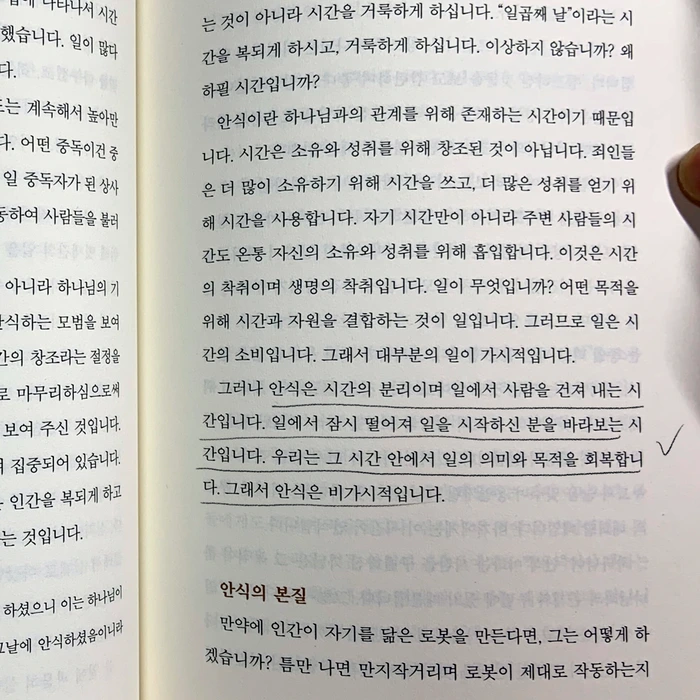 에 나타나서 시간
했습니다. 일이 많다
다.
도는 계속해서 높아만
다. 어떤 중독이건 중
일 중독자가 된 상사
동하여 사람들을 불러
아니라 하나님의 기
안식하는 모범을 보여
간의 창조라는 절정을
로 마무리하심으로써
보여 주신 것입니다.
에 집중되어 있습니다.
은 인간을 복되게 하고
는 것입니다.
하셨으니 이는 하나님이
그날에 안식하셨음이니라
는 것이 아니라 시간을 거룩하게 하십니다. “일곱째 날”이라는 시
간을 복되게 하시고, 거룩하게 하십니다. 이상하지 않습니까? 왜
하필 시간입니까?
안식이란 하나님과의 관계를 위해 존재하는 시간이기 때문입
니다. 시간은 소유와 성취를 위해 창조된 것이 아닙니다. 죄인들
은 더 많이 소유하기 위해 시간을 쓰고, 더 많은 성취를 얻기 위
해 시간을 사용합니다. 자기 시간만이 아니라 주변 사람들의 시
간도 온통 자신의 소유와 성취를 위해 흡입합니다. 이것은 시간
의 착취이며 생명의 착취입니다. 일이 무엇입니까? 어떤 목적을
위해 시간과 자원을 결합하는 것이 일입니다. 그러므로 일은 시
간의 소비입니다. 그래서 대부분의 일이 가시적입니다.
그러나 안식은 시간의 분리이며 일에서 사람을 건져 내는 시
간입니다. 일에서 잠시 떨어져 일을 시작하신 분을 바라보는 시
간입니다. 우리는 그 시간 안에서 일의 의미와 목적을 회복합니
다. 그래서 안식은 비가시적입니다.
안식의 본질
만약에 인간이 자기를 닮은 로봇을 만든다면, 그는 어떻게 하
겠습니까? 틈만 나면 만지작거리며 로봇이 제대로 작동하는지